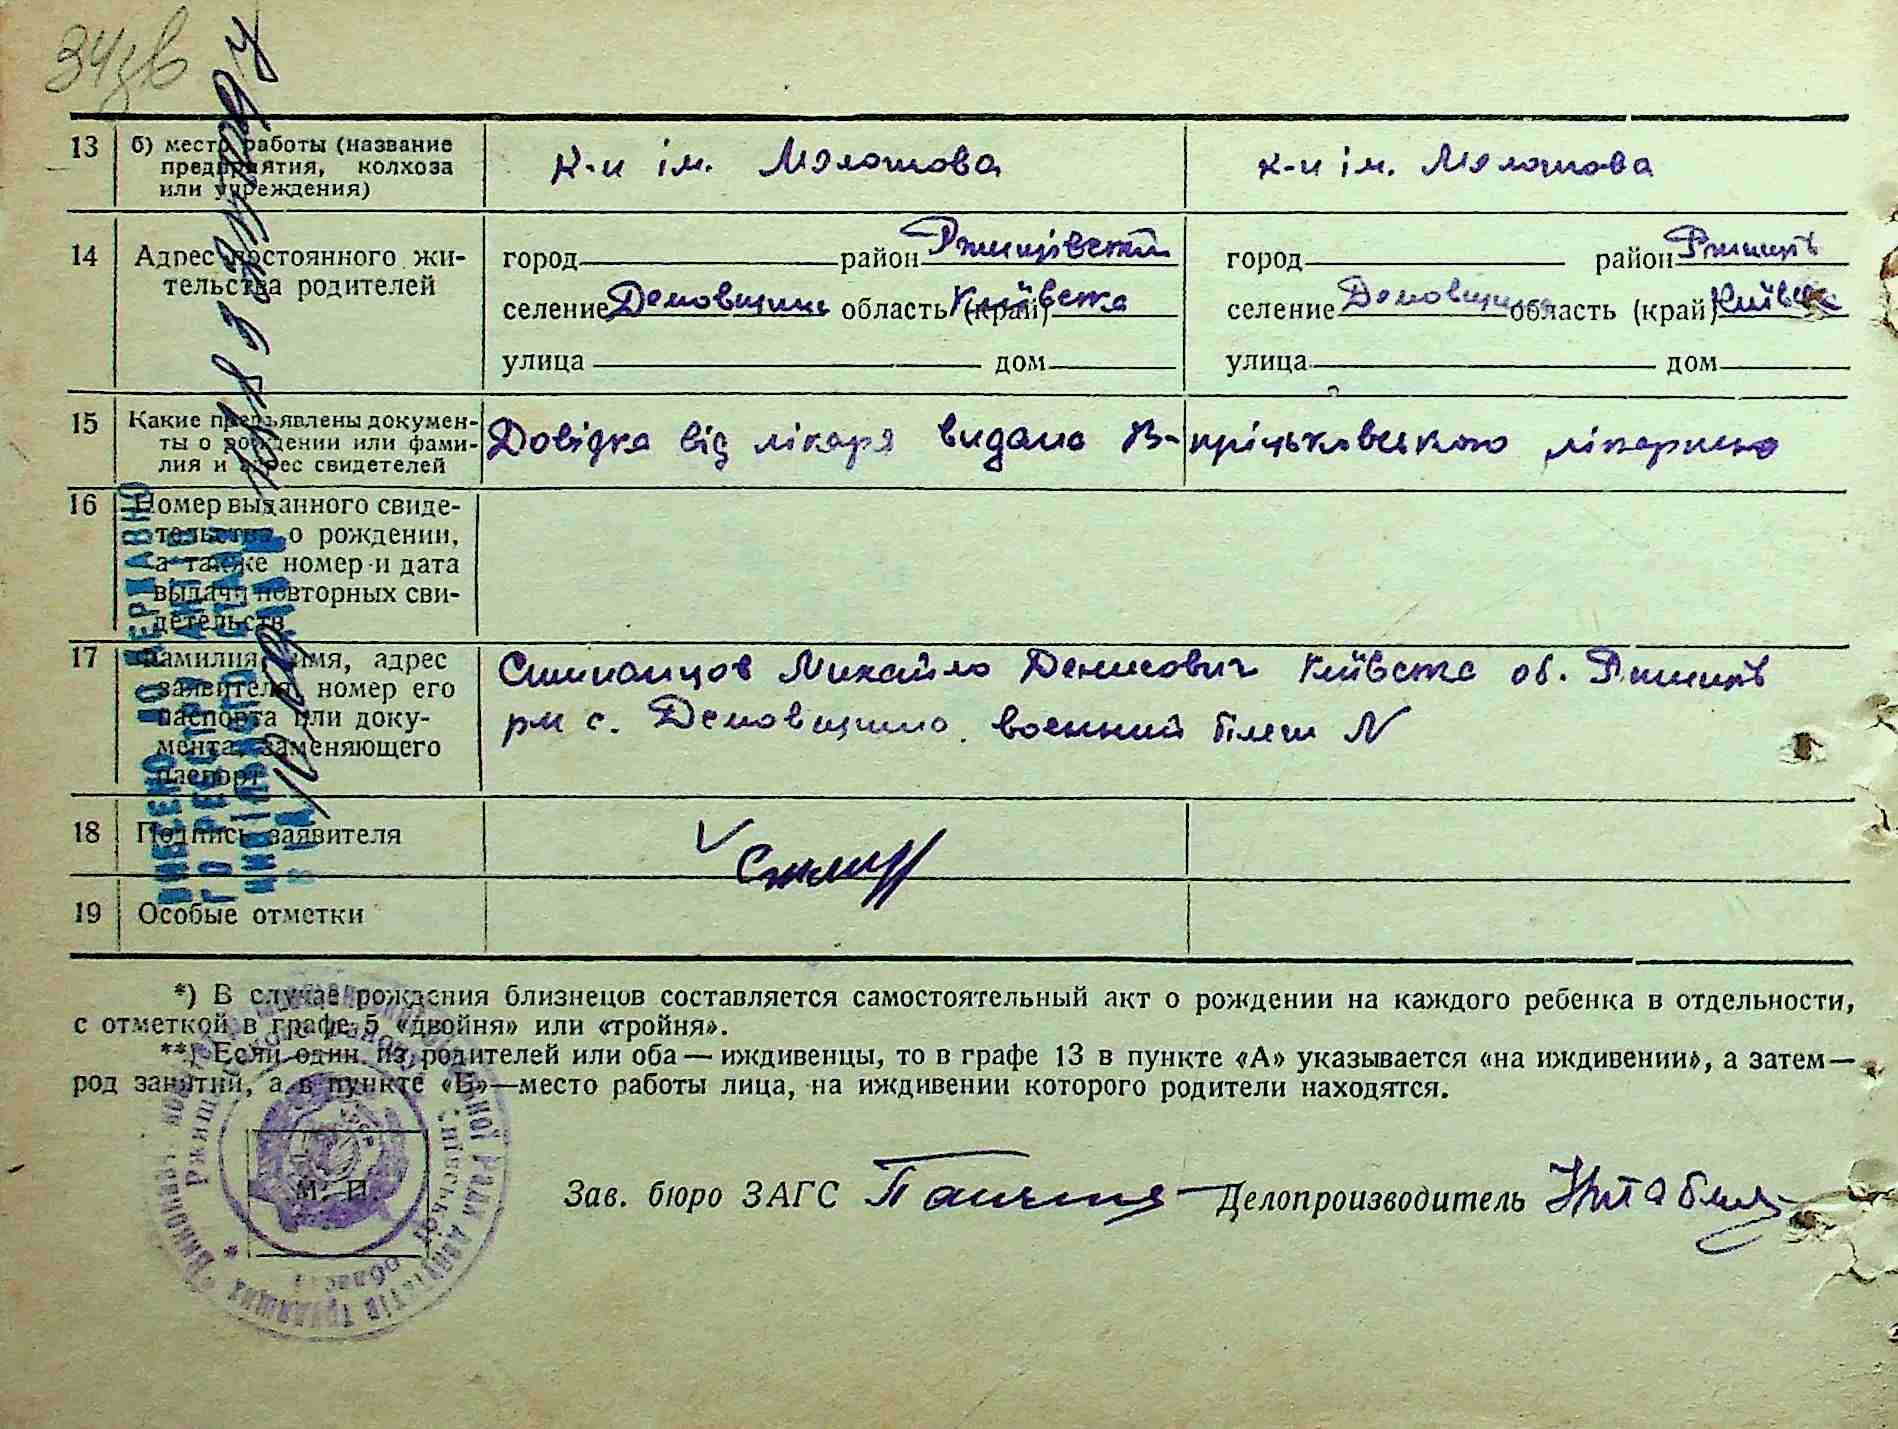 34зв
13 б) место работы (название предприятия, колхоза или учреждения)
к-п ім. Молотова
к-п ім. Молотова
14 Адрес постоянного жительства родителей
город район Ржищівський
селение область (край) Київська
улица дом
город район Ржищів
селение область (край) Київська
улица дом
15 Какие предъявлены документы о рождении или фамилия и адрес свидетелей
Довідка від лікаря видана лікарнею
16 Номер выданного свидетельства о рождении, а также номер и дата выдачи повторных свидетельств
17 Фамилия, имя, адрес заявителя, номер его паспорта или документа, заменяющего паспорт
Михайло Денисович Київська об. Ржищів
рн с. военний білет N
18 Подпись заявителя
19 Особые отметки
ВНЕСЕНО ДО ДЕРЖАВНО
ГО РЕЄСТРУ АКТІВ
ЦИВІЛЬНОГО СТАНУ
*) В случае рождения близнецов составляется самостоятельный акт о рождении на каждого ребенка в отдельности,
с отметкой в графе 5 «двойня» или «тройня».
**) Если один из родителей или оба — иждивенцы, то в графе 13 в пункте «А» указывается «на иждивении», а затем —
род занятий, а в пункте «Б» — место работы лица, на иждивении которого родители находятся.
М. П.
Зав. бюро ЗАГС Делопроизводитель